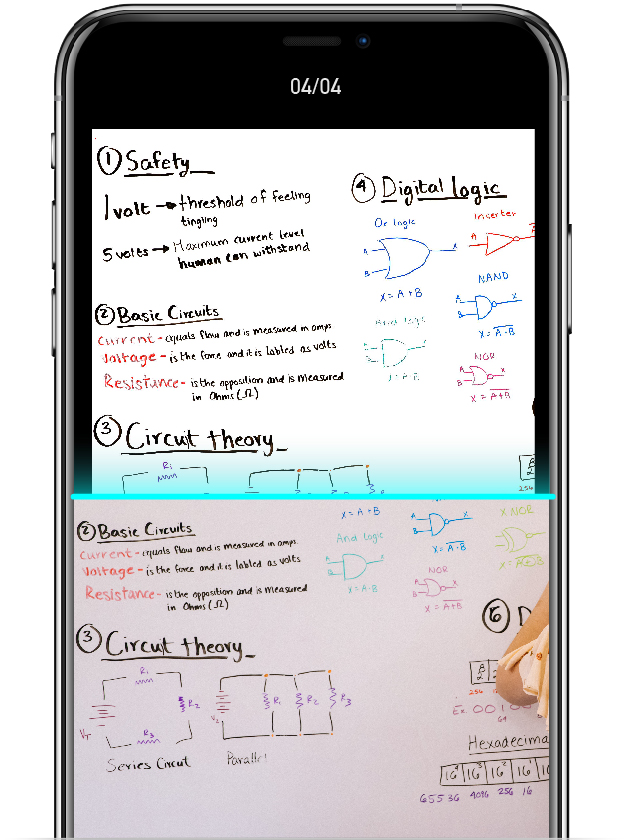 04/04
① Safety
1 volt → threshold of feeling
tingling
5 volts → Maximum current level
human can withstand
② Basic Circuits
Current - equals flow and is measured in amps
Voltage - is the force and it is labled as volts
Resistance - is the opposition and is measured
in Ohms (Ω)
③ Circuit theory
R₁
④ Digital logic
Or logic
A
B
X
X = A + B
Inverter
A
NAND
A
B
X
X = \overline{A·B}
And logic
A
B
X
X = A·B
NOR
A
B
X
X = \overline{A+B}
256
② Basic Circuits
Current - equals flow and is measured in amps
Voltage - is the force and it is labled as volts
Resistance - is the opposition and is measured
in Ohms (Ω)
③ Circuit theory
R₁
R₂
R₃
V_T
Series Circuit
R₁
R₂
R₃
Parallel
X = A + B
And logic
A
B
X = A·B
A
B
X
X = \overline{A·B}
NOR
A
B
X
X = \overline{A+B}
X NOR
⑥ D
256
Ex 001
64
Hexadecima
16⁴ 16³ 16² 16¹ 1
65536 4096 256 16